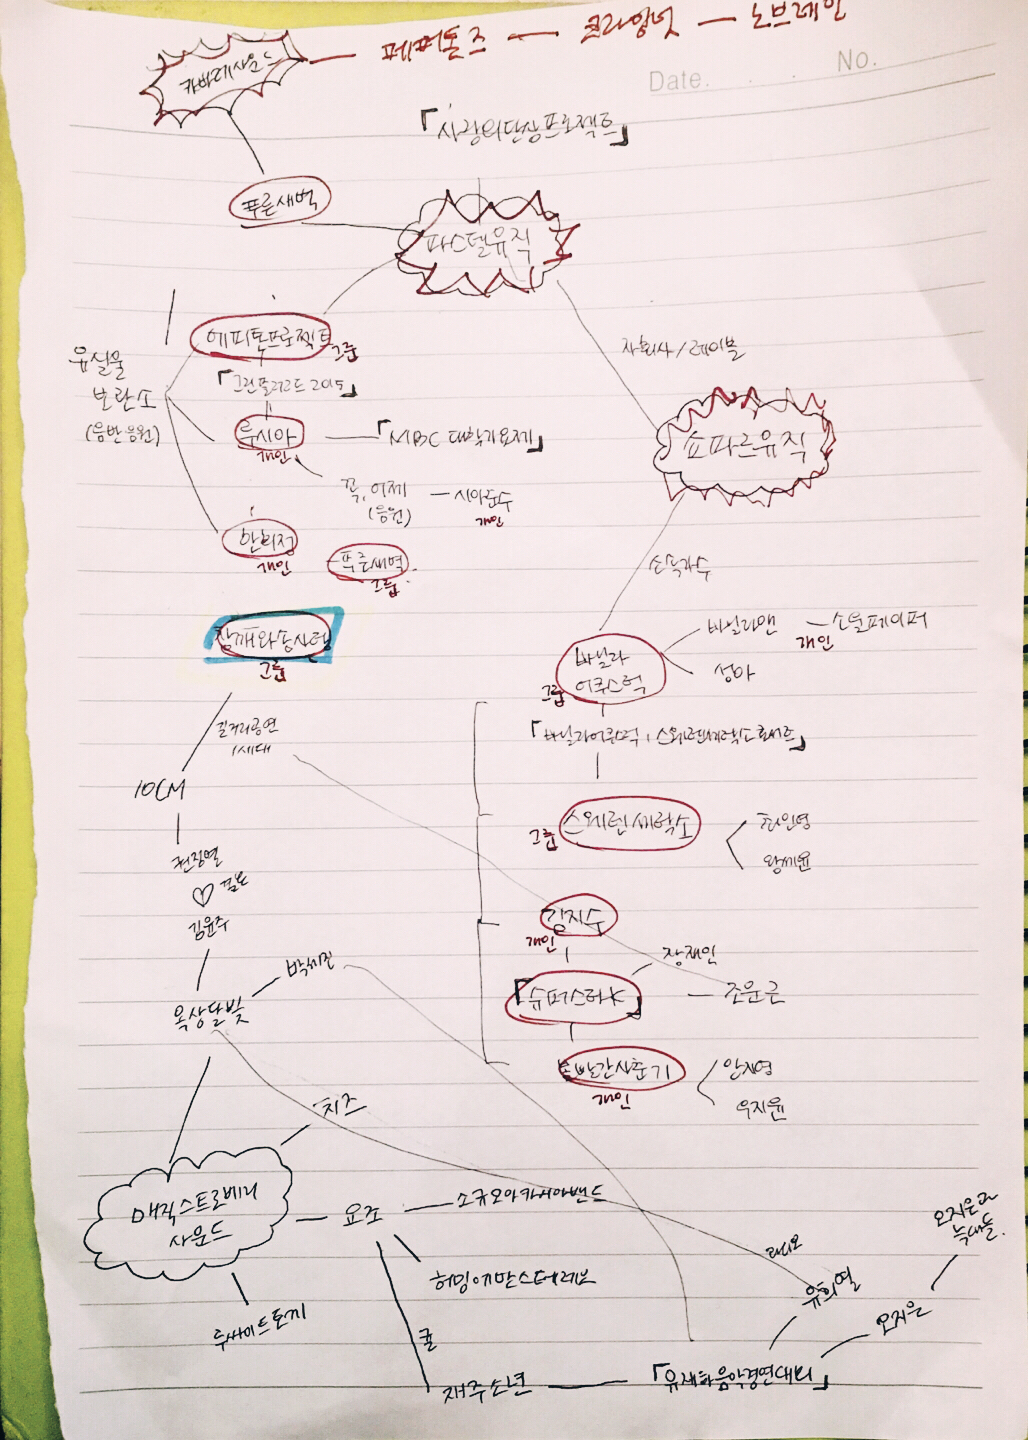 카바레사운드 — 페퍼톤즈 — 크라잉넛 — 노브레인
Date. . . No.
「사랑의단상프로젝트」
푸른새벽
파스텔뮤직
에피톤프로젝트 그룹
자회사/레이블
유실물
보관소
(음반음원)
「그린플러그드 2015」
루시아 —「MBC 대학가요제」
개인
쇼파르뮤직
꼭, 어제 — 시아준수
(음원) 개인
한희정
개인
푸른새벽
그룹
소속가수
참깨와솜사탕
그룹
바닐라
어쿠스틱
그룹
바닐라맨 — 소울페이퍼
개인
성아
길거리공연
1세대
「바닐라어쿠스틱, 스웨덴세탁소 콘서트」
10CM
스웨덴세탁소
그룹
최인영
왕세윤
권정열
♡ 결혼
김윤주
김지수
개인
박세진
장재인
옥상달빛
「슈퍼스타K」 — 조문근
볼빨간사춘기
개인
안지영
우지윤
치즈
매직스트로베리
사운드
— 요조 — 소규모아카시아밴드
오지은과
늑대들.
라디오
허밍어반스테레오
유희열
선우사이드토끼
귤
오지은
재주소년 — 「유재하음악경연대회」